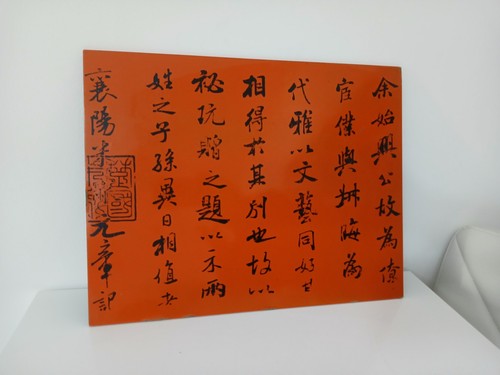 余始興公故為僚
宦僕與叔晦為
代雅以文藝同好甚
相得於其別也故以
祕玩贈之題以示兩
姓之子孫異日相值者
襄陽米元章記